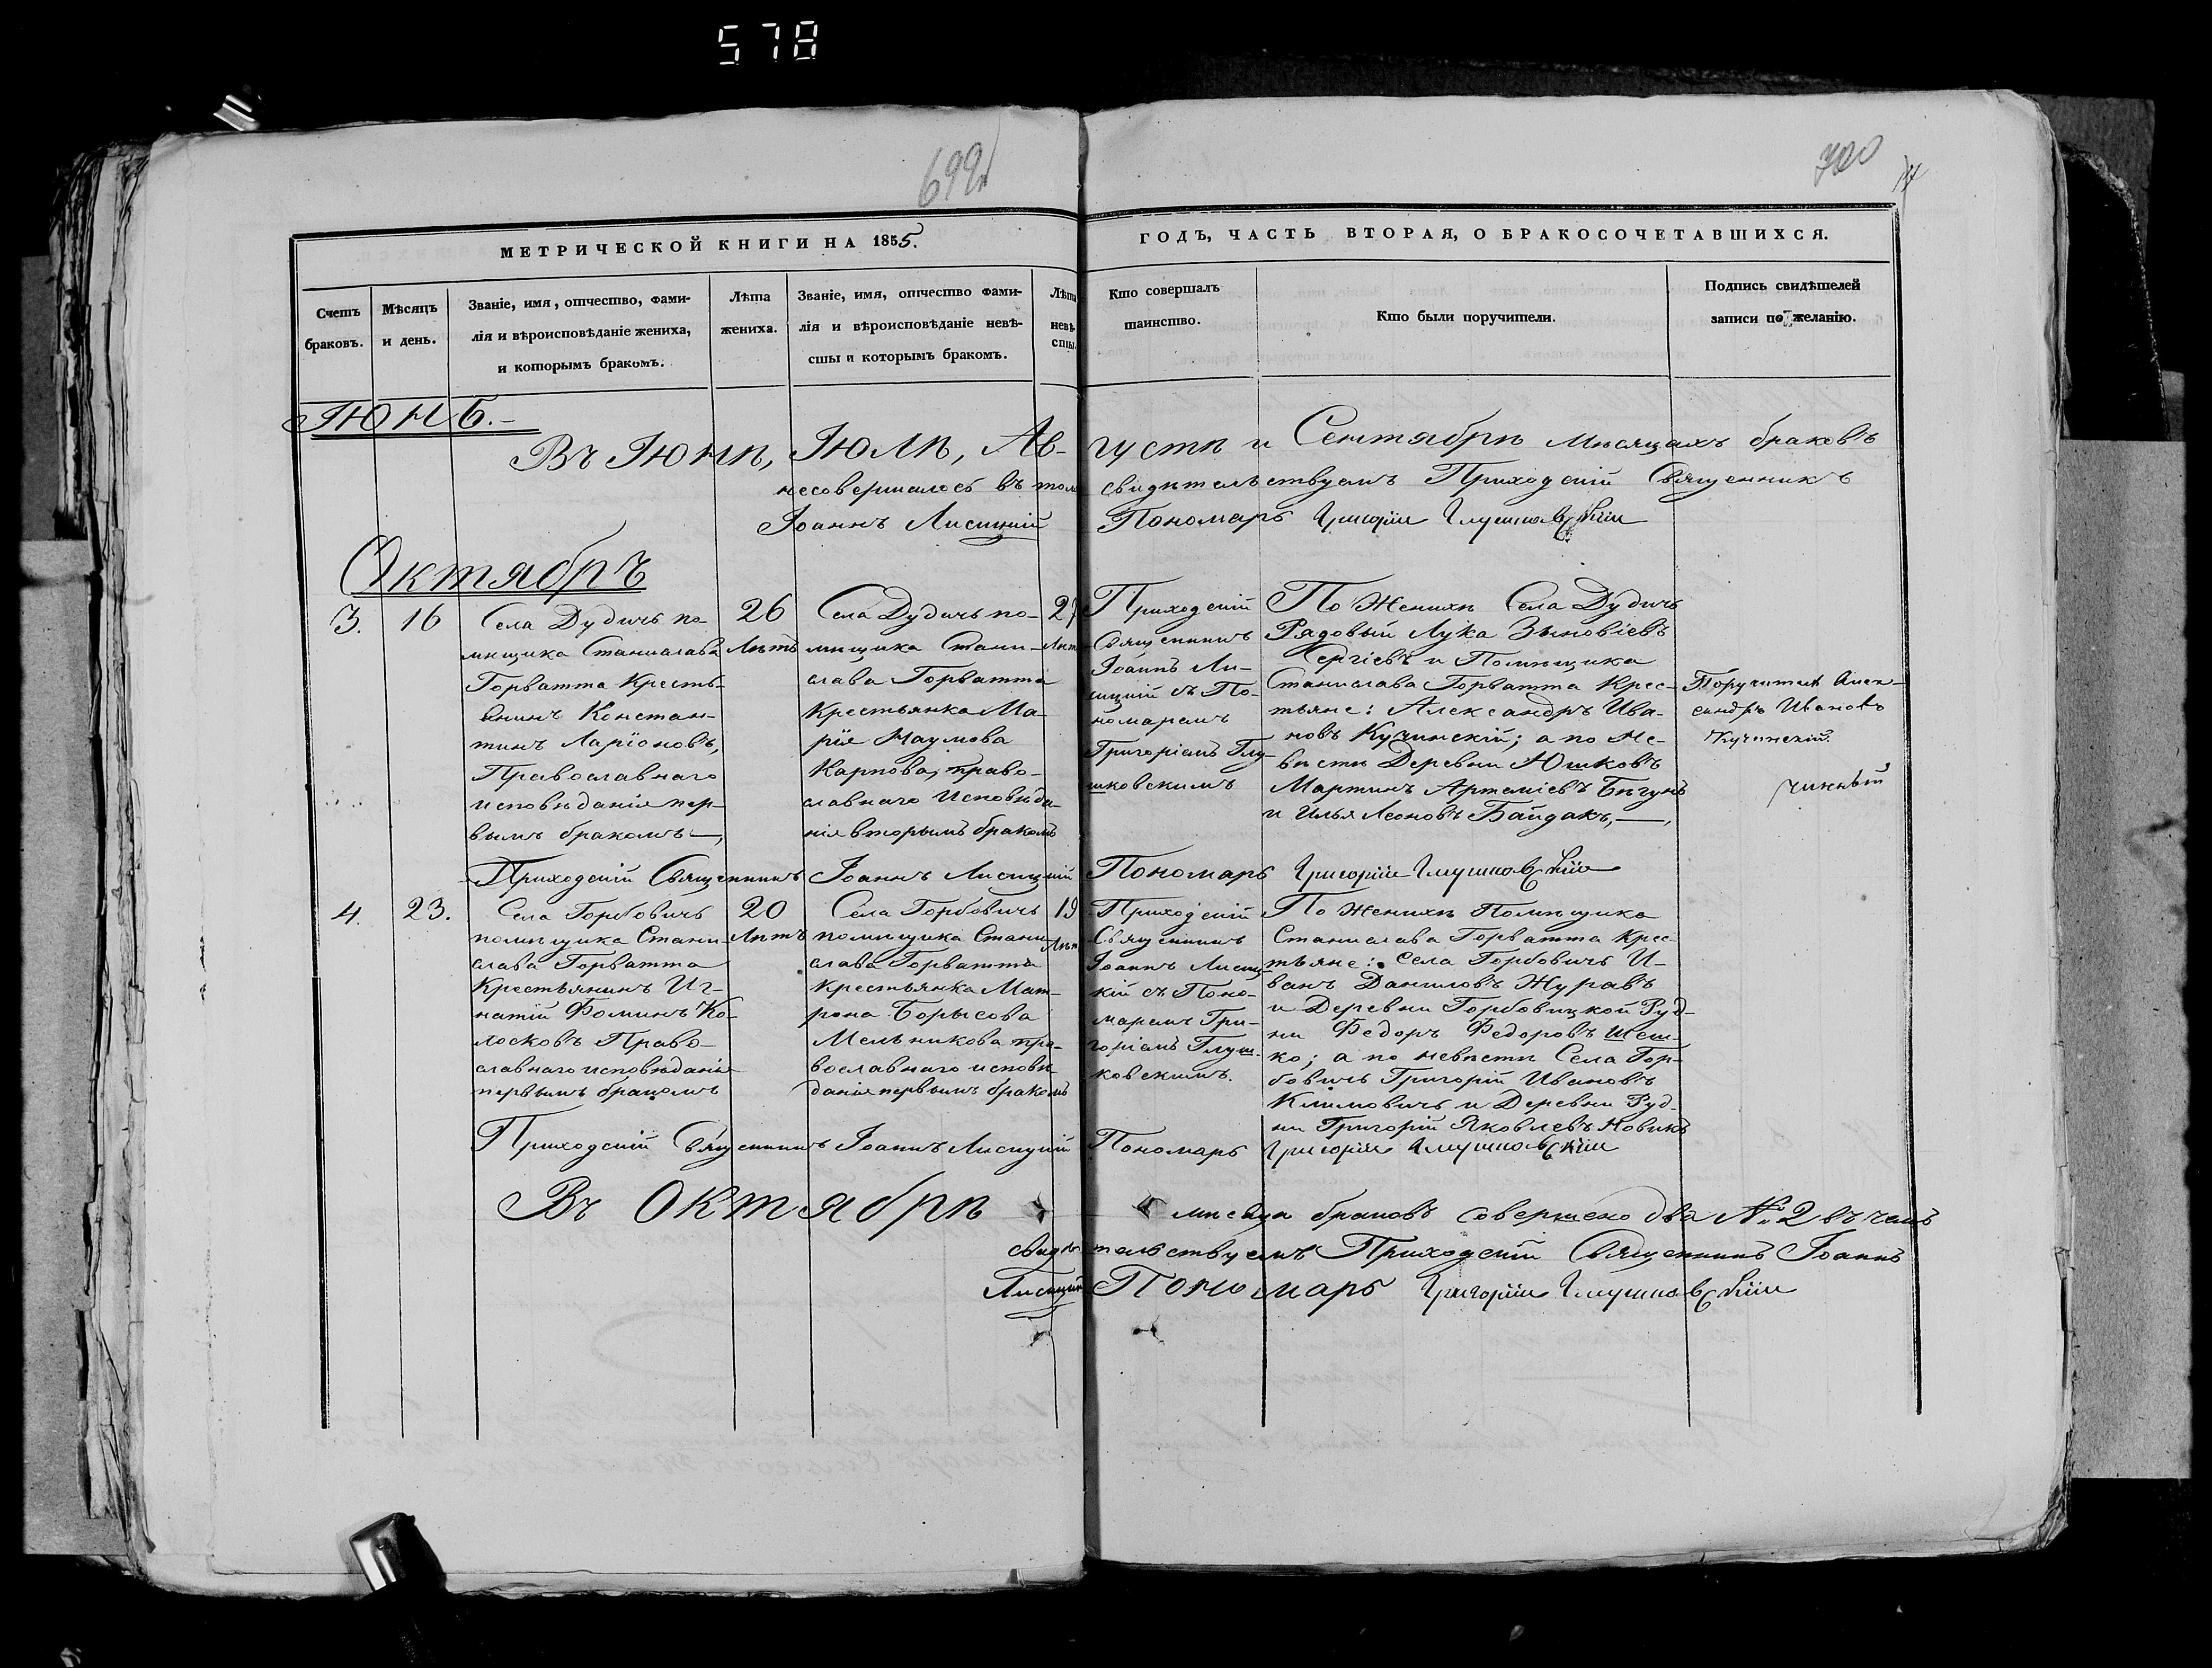 578
699
700
МЕТРИЧЕСКОЙ КНИГИ НА 1855.
ГОДЪ, ЧАСТЬ ВТОРАЯ, О БРАКОСОЧЕТАВШИХСЯ.
Счетъ
браковъ.
Мѣсяцъ
и день.
Званіе, имя, отчество, фами-
лія и вѣроисповѣданіе жениха,
и которымъ бракомъ.
Лѣта
жениха.
Званіе, имя, отчество фами-
лія и вѣроисповѣданіе невѣ-
сты и которымъ бракомъ.
Лѣта
невѣ-
сты.
Кто совершалъ
таинство.
Кто были поручители.
Подпись свидѣтелей
записи по желанію.
Іюнь.
Въ Іюнѣ, Іюлѣ, Ав- густѣ и Сентябрѣ мѣсяцахъ браковъ
несовершалось въ томъ свидѣтельствуемъ Приходскій Священникъ
Іоаннъ Лисицкій Пономарь Григорій Глушковскій
Октябрь
3.
16
Села Дудичь по-
мѣщика Станислава
Горватта Кресть-
янинъ Констан-
тинъ Ларіоновъ,
Православнаго
исповѣданія пер-
вымъ бракомъ,
26
Лѣтъ
Села Дудичь по-
мѣщика Стани-
слава Горватта
Крестьянка Ма-
рія Наумова
Карпова, право-
славнаго Исповѣда-
нія вторымъ бракомъ
27
Лѣтъ
Приходскій
Священникъ
Іоаннъ Ли-
сицкій съ По-
номаремъ
Григоріемъ Глу-
шковскимъ
По Женихѣ Села Дудичь
Рядовый Лука Зѣновіевъ
Сергіевъ и Помѣщика
Станислава Горватта Крес-
тьяне: Александръ Ива-
новъ Кучинскій; а по Не-
вѣстѣ Деревни Юшковъ
Мартинъ Артеміевъ Бѣгунъ
и Илья Леоновъ Байдакъ,
Поручитель Алек-
сандръ Ивановъ
Кучинскій.
Приходскій Священникъ Іоаннъ Лисицкій Пономарь Григорій Глушковскій
4.
23.
Села Горбовичь
помѣщика Стани-
слава Горватта
Крестьянинъ Иг-
натій Фоминъ Ко-
лосковъ Право-
славнаго исповѣданія
первымъ бракомъ
20
Лѣтъ
Села Горбовичь
помѣщика Стани-
слава Горватта
Крестьянка Мат-
рона Борысова
Мельникова пра-
вославнаго исповѣ-
данія первымъ бракомъ
19
Лѣтъ
Приходскій
Священникъ
Іоаннъ Лисиц-
кій съ Поно-
маремъ Гри-
горіемъ Глуш-
ковскимъ.
По Женихѣ Помѣщика
Станислава Горватта Крес-
тьяне: Села Горбовичь И-
ванъ Даниловъ Журавъ
и Деревни Горбовицкой Руд-
ни Федоръ Федоровъ Шеш-
ко; а по невѣстѣ Села Гор-
бовичь Григорій Ивановъ
Климовичь и Деревни Руд-
ни Григорій Яковлевъ Новикъ
Приходскій Священникъ Іоаннъ Лисицкій Пономарь Григорій Глушковскій
Въ Октябрѣ мѣсяцѣ браковъ совершено два № 2 въ чемъ
свидѣтельствуемъ Приходскій Священникъ Іоаннъ
Лисицкій Пономарь Григорій Глушковскій